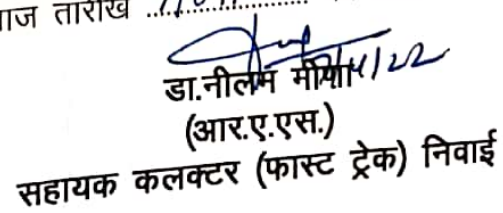 ाज तारीख ..................
डा.नीलम मीणा
(आर.ए.एस.)
सहायक कलक्टर (फास्ट ट्रेक) निवाई